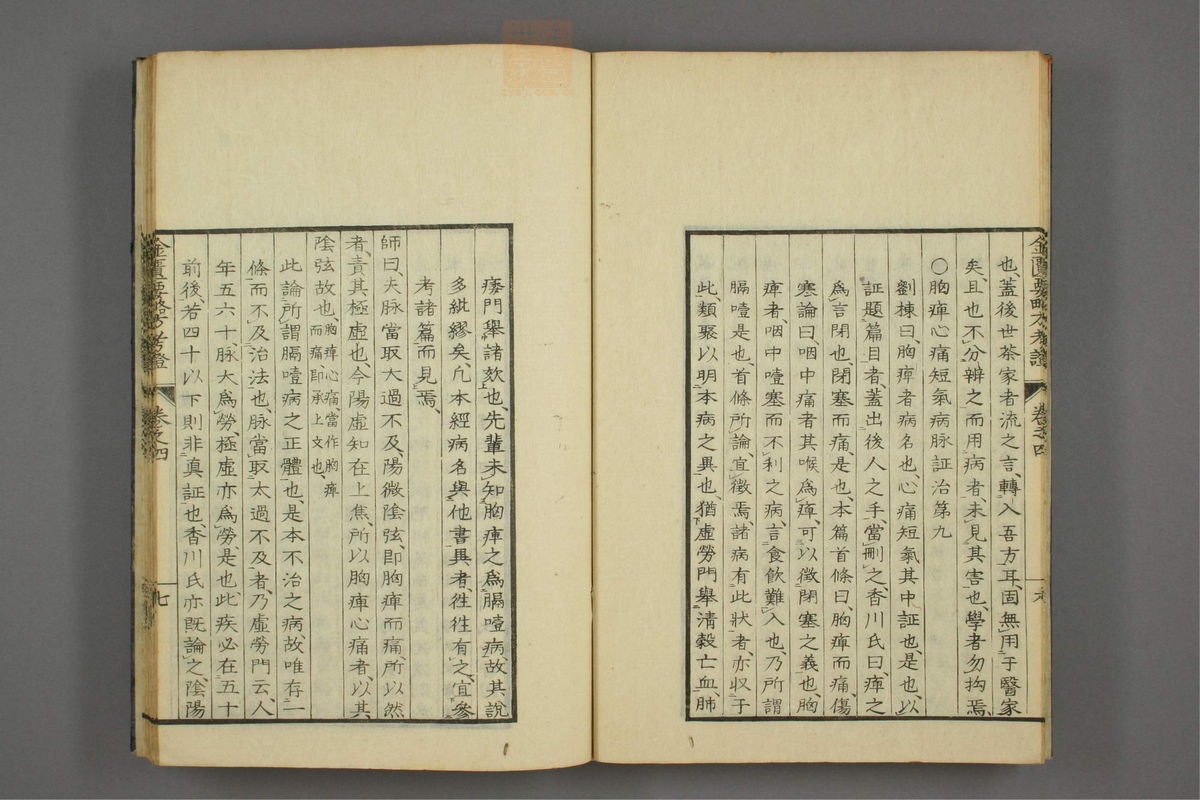 金匱要略方考證
也、蓋後世茶家者流之言、轉入吾方耳、固無用于醫家
矣、且也不分辨之而用病者、未見其害也、學者勿拘焉、
○胸痺心痛短氣病脉証治第九
劉棟曰、胸痺者病名也、心痛短氣其中証也、是也、以
証題篇目者、蓋出後人之手、當刪之、香川氏曰、痺之
爲言閉也、閉塞而痛、是也、本篇首條曰、胸痺而痛、傷
寒論曰、咽中痛者其喉爲痺、可以徵閉塞之義也、胸
痺者、咽中噎塞而不利之病、言食飲難入也、乃所謂
膈噎是也、首條所論、宜徵焉、諸病有此狀者、亦収于
此、類聚以明本病之異也、猶虛勞門舉清穀亡血、肺
痿門舉諸欬也、先輩未知胸痺之爲膈噎病、故其說
多紕繆矣、凡本經病名與他書異者、徃徃有之、宜參
考諸篇而見焉、
師曰、夫脉當取大過不及、陽微陰弦、即胸痺而痛、所以然
者、責其極虛也、今陽虛知在上焦、所以胸痺心痛者、以其
陰弦故也、胸痺心痛、當作胸痺
而痛、即承上文也
此論所謂膈噎病之正體也、是本不治之病、故唯存一
條而不及治法也、脉當取太過不及者、乃虛勞門云、人
年五六十、脉大爲勞、極虛亦爲勞、是也、此疾必在五十
前後、若四十以下則非眞証也、香川氏亦既論之、陰陽
金匱要略方考證
卷之四